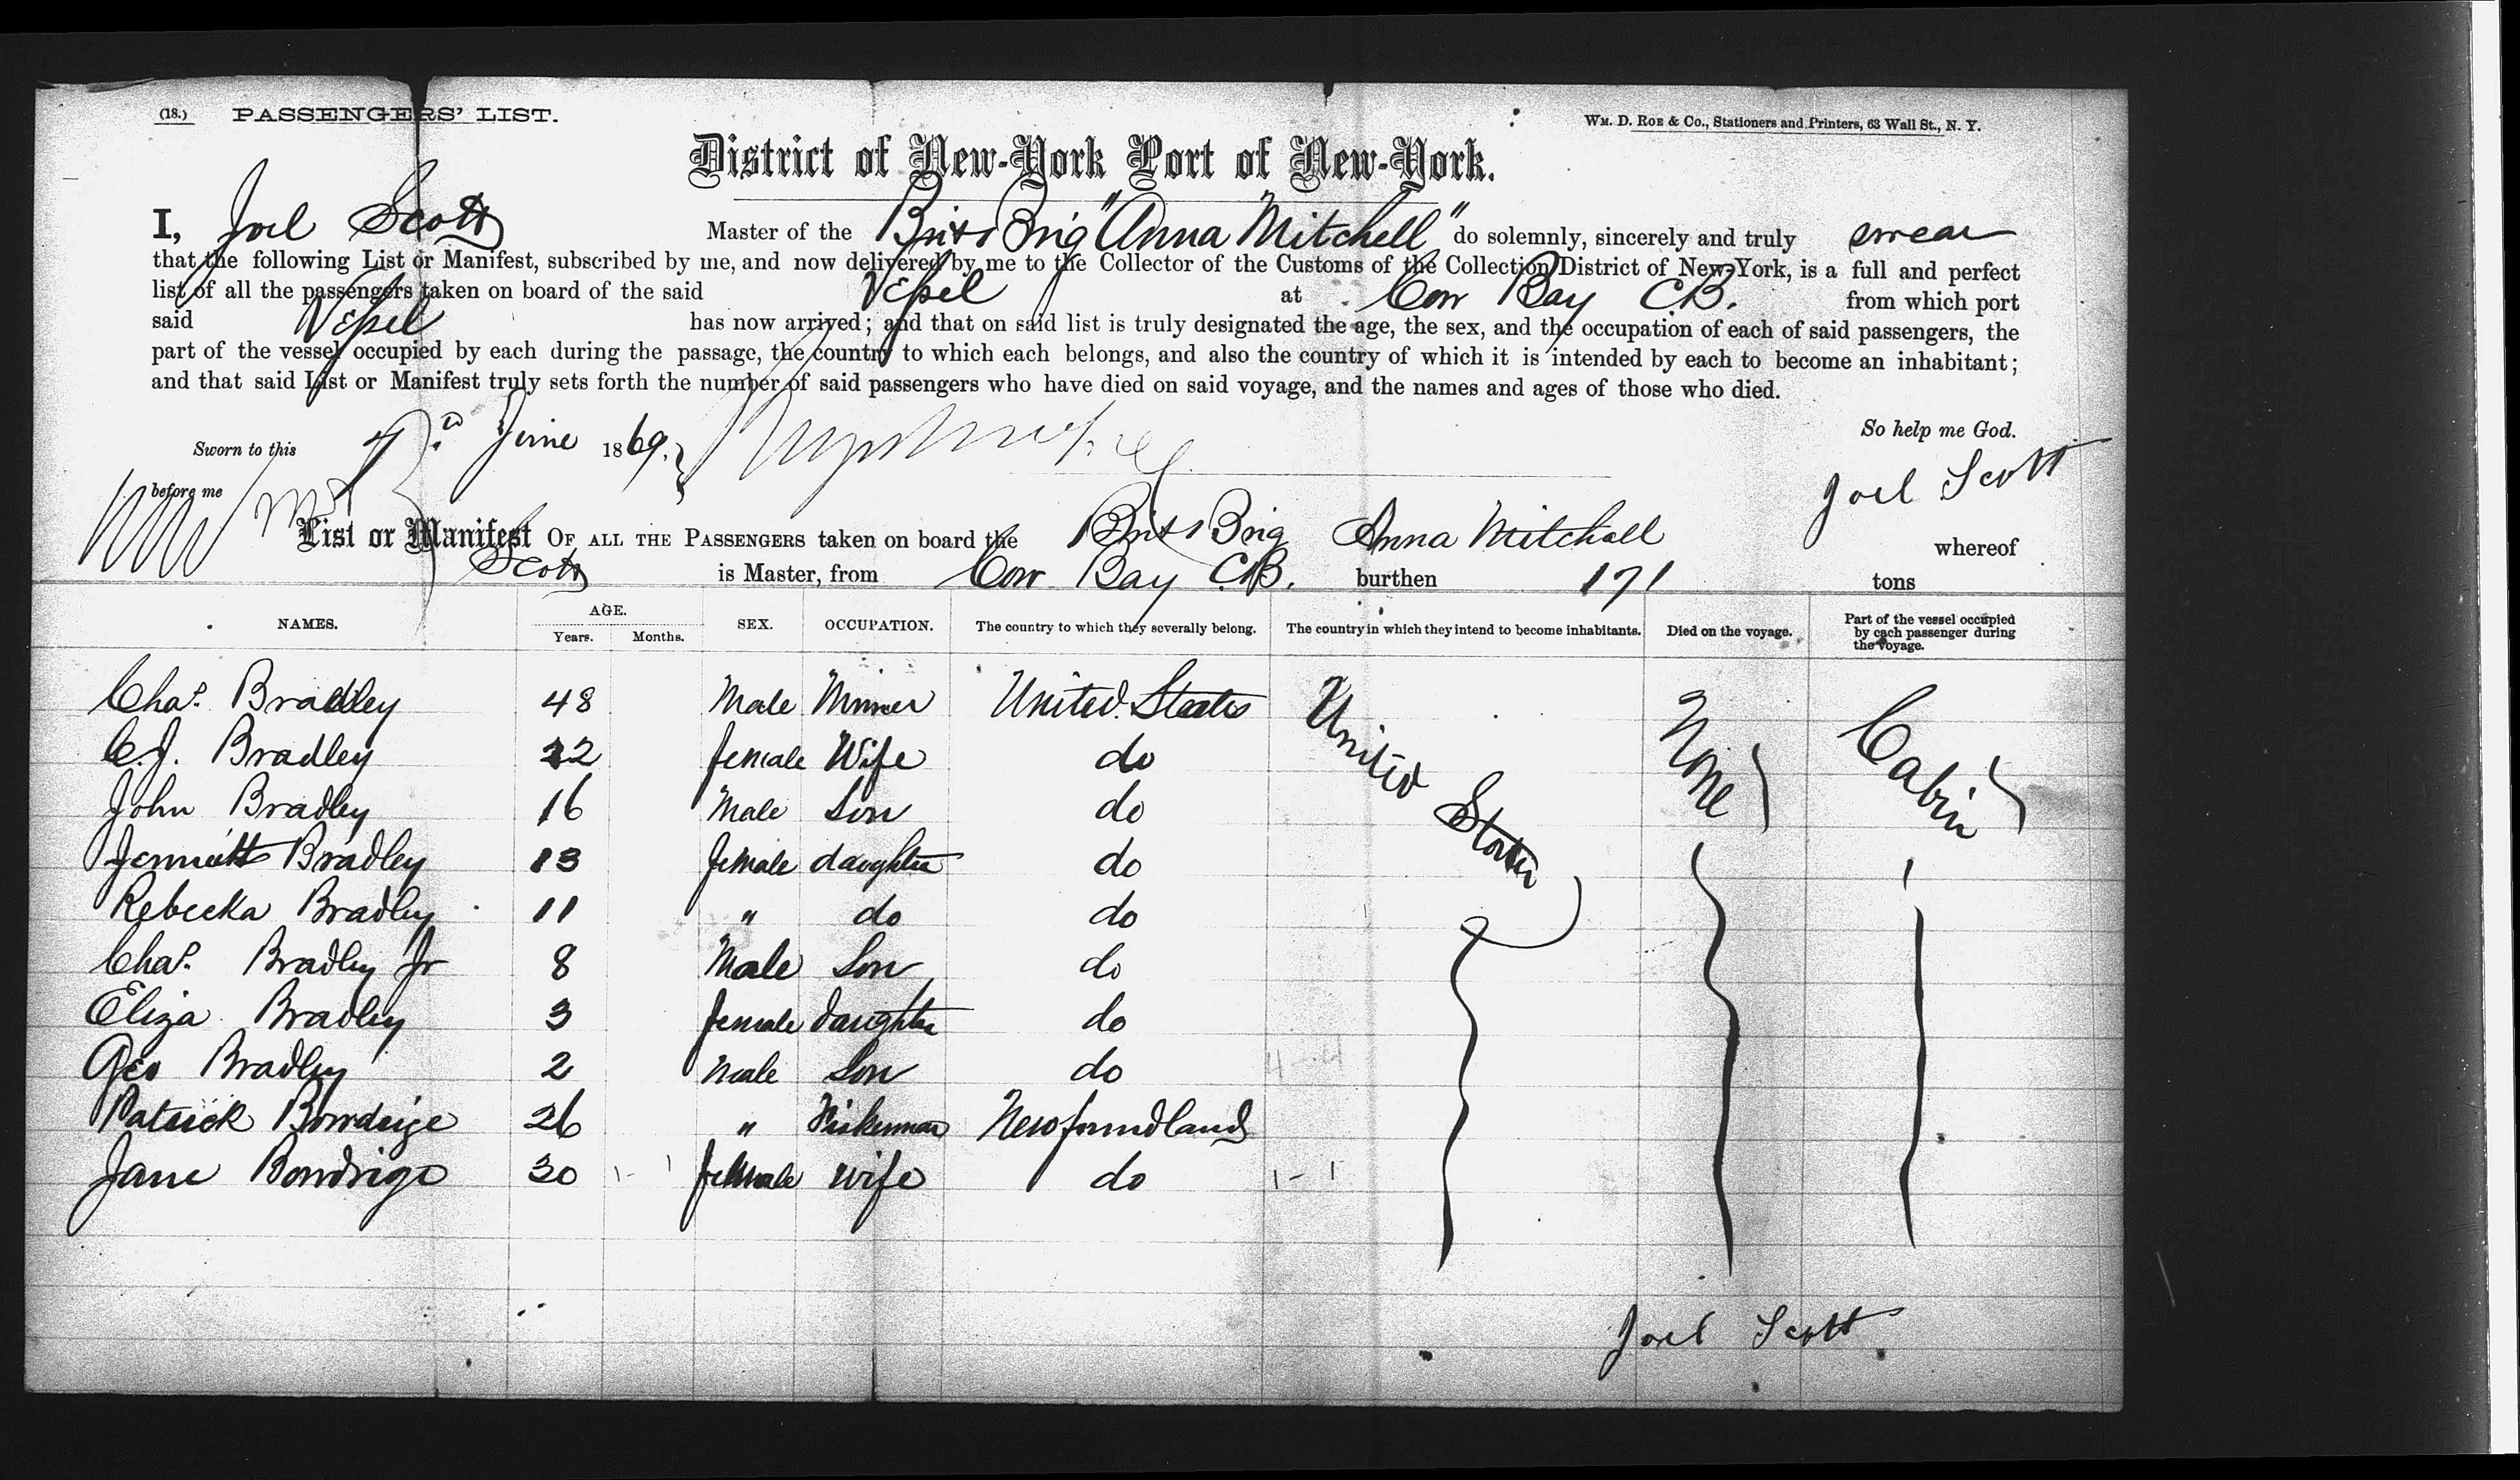 (18.) PASSENGERS' LIST.
WM. D. ROE & CO., Stationers and Printers, 63 Wall St., N. Y.
District of New-York Port of New-York.
I, Joel Scott Master of the Brit Brig "Anna Mitchell" do solemnly, sincerely and truly swear
that the following List or Manifest, subscribed by me, and now delivered by me to the Collector of the Customs of the Collection District of New-York, is a full and perfect
list of all the passengers taken on board of the said Vessel at Cow Bay C.B. from which port
said Vessel has now arrived; and that on said list is truly designated the age, the sex, and the occupation of each of said passengers, the
part of the vessel occupied by each during the passage, the country to which each belongs, and also the country of which it is intended by each to become an inhabitant;
and that said List or Manifest truly sets forth the number of said passengers who have died on said voyage, and the names and ages of those who died.
So help me God.
Sworn to this June 1869.
before me
Joel Scott
List or Manifest OF ALL THE PASSENGERS taken on board the Brit Brig Anna Mitchell whereof
Scott is Master, from Cow Bay C.B. burthen 171 tons
NAMES. AGE. Years. Months. SEX. OCCUPATION. The country to which they severally belong. The country in which they intend to become inhabitants. Died on the voyage. Part of the vessel occupied by each passenger during the voyage.
Chas. Bradley 48 Male Minner United States United States None Cabin
C.J. Bradley 22 female Wife do
John Bradley 16 Male Son do
Jennett Bradley 13 female daughter do
Rebecka Bradley 11 " do do
Chas. Bradley Jr 8 Male Son do
Eliza Bradley 3 female daughter do
Geo Bradley 2 Male Son do
Patrick 26 " Fisherman Newfoundland
Jane Bondrige 30 female wife do
Joel Scott